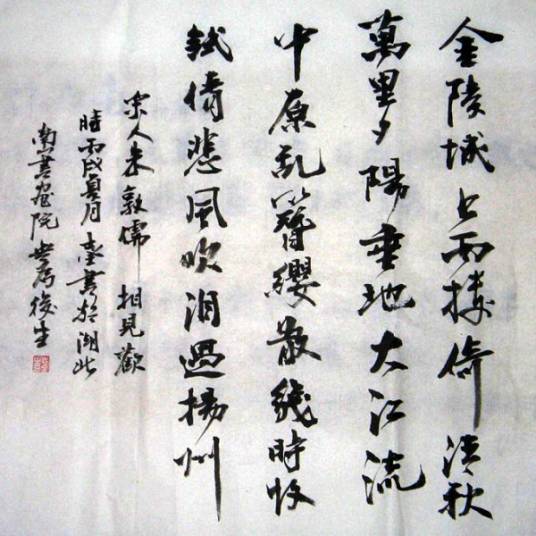 金陵城上西樓倚清秋
萬里夕陽垂地大江流
中原亂簪纓散幾時收
試倩悲風吹泪過揚州
宋人朱敦儒 相見歡
時丙戌夏月書於湖
南書畫院